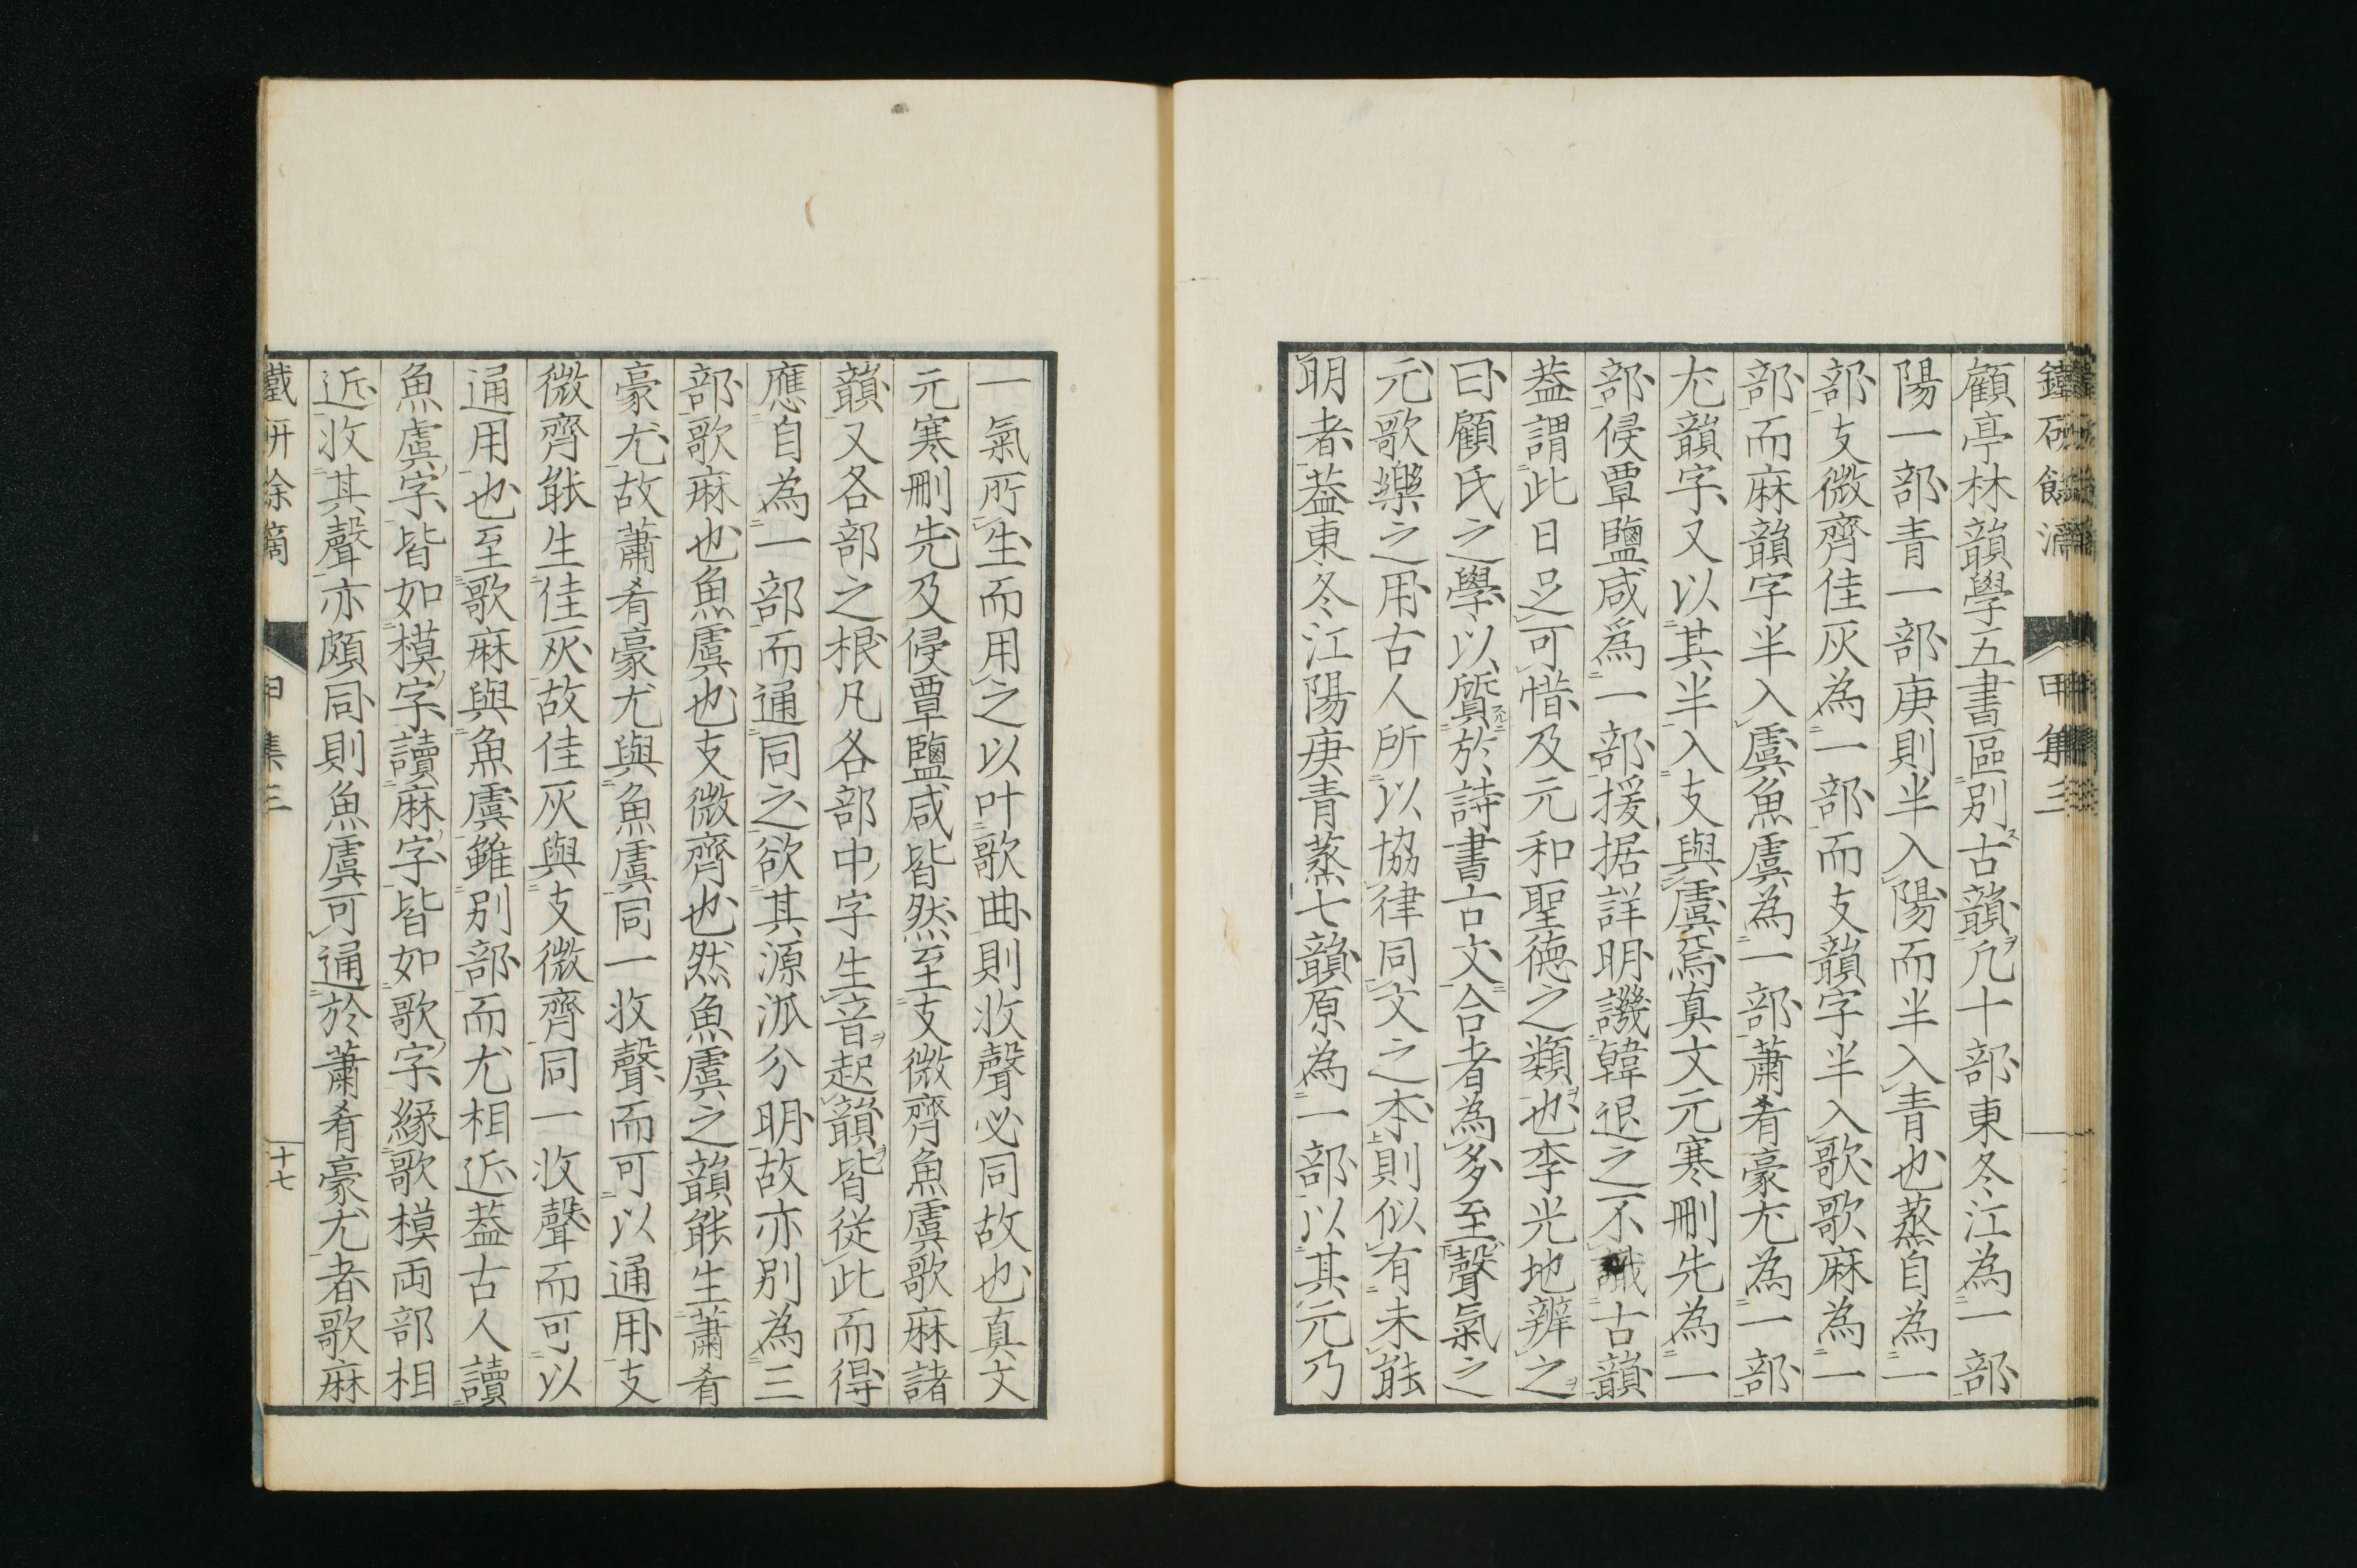 顧亭林韻學五書區別古韻凡十部東冬江為一部
陽一部青一部庚則半入陽而半入青也蒸自為一
部支微齊佳灰為一部而支韻字半入歌歌麻為一
部而麻韻字半入虞魚虞為一部蕭肴豪尤為一部
尤韻字又以其半入支與虞焉真文元寒刪先為一
部侵覃鹽咸爲一部援据詳明譏韓退之不識古韻
葢謂此日足可惜及元和聖德之類也李光地辨之
曰顧氏之學以質於詩書古文合者為多至聲氣之
元歌樂之用古人所以協律同文之本則似有未能
明者葢東冬江陽庚青蒸七韻原為一部以其元乃
一氣所生而用之以叶歌曲則收聲必同故也真文
元寒刪先及侵覃鹽咸皆然至支微齊魚虞歌麻諸
韻又各部之根凡各部中字生音起韻皆從此而得
應自為一部而通同之欲其源派分明故亦別為三
部歌麻也魚虞也支微齊也然魚虞之韻能生蕭肴
豪尤故蕭肴豪尤與魚虞同一收聲而可以通用支
微齊能生佳灰故佳灰與支微齊同一收聲而可以
通用也至歌麻與魚虞雖別部而尤相近葢古人讀
魚虞字皆如模字讀麻字皆如歌字緣歌模両部相
近收其聲亦頗同則魚虞可通於蕭肴豪尤者歌麻
甲集三
十七